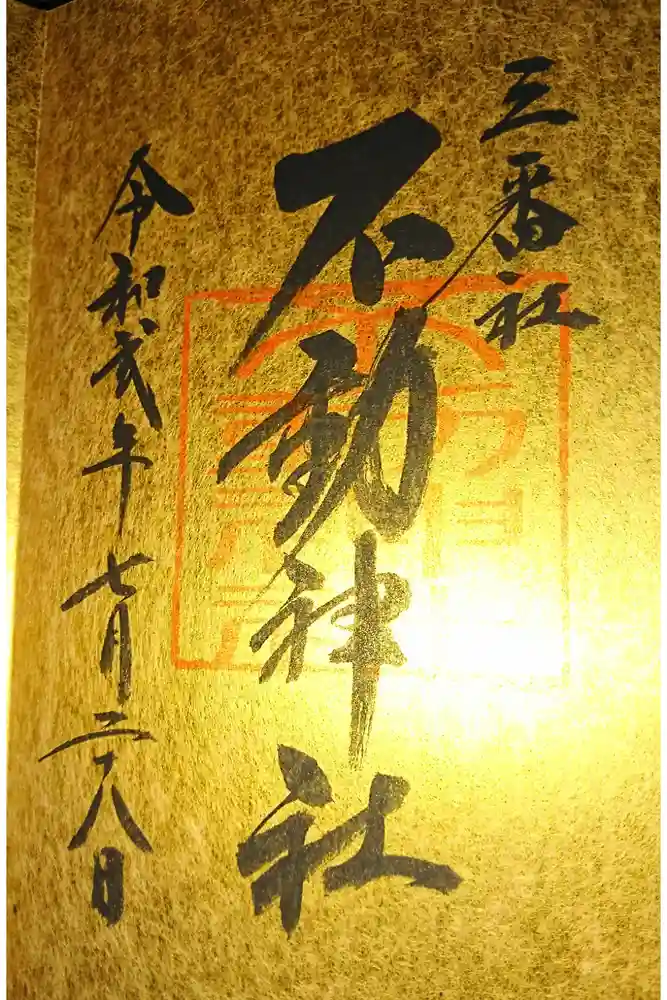 三番社
不動神社
令和弐年七月二十八日